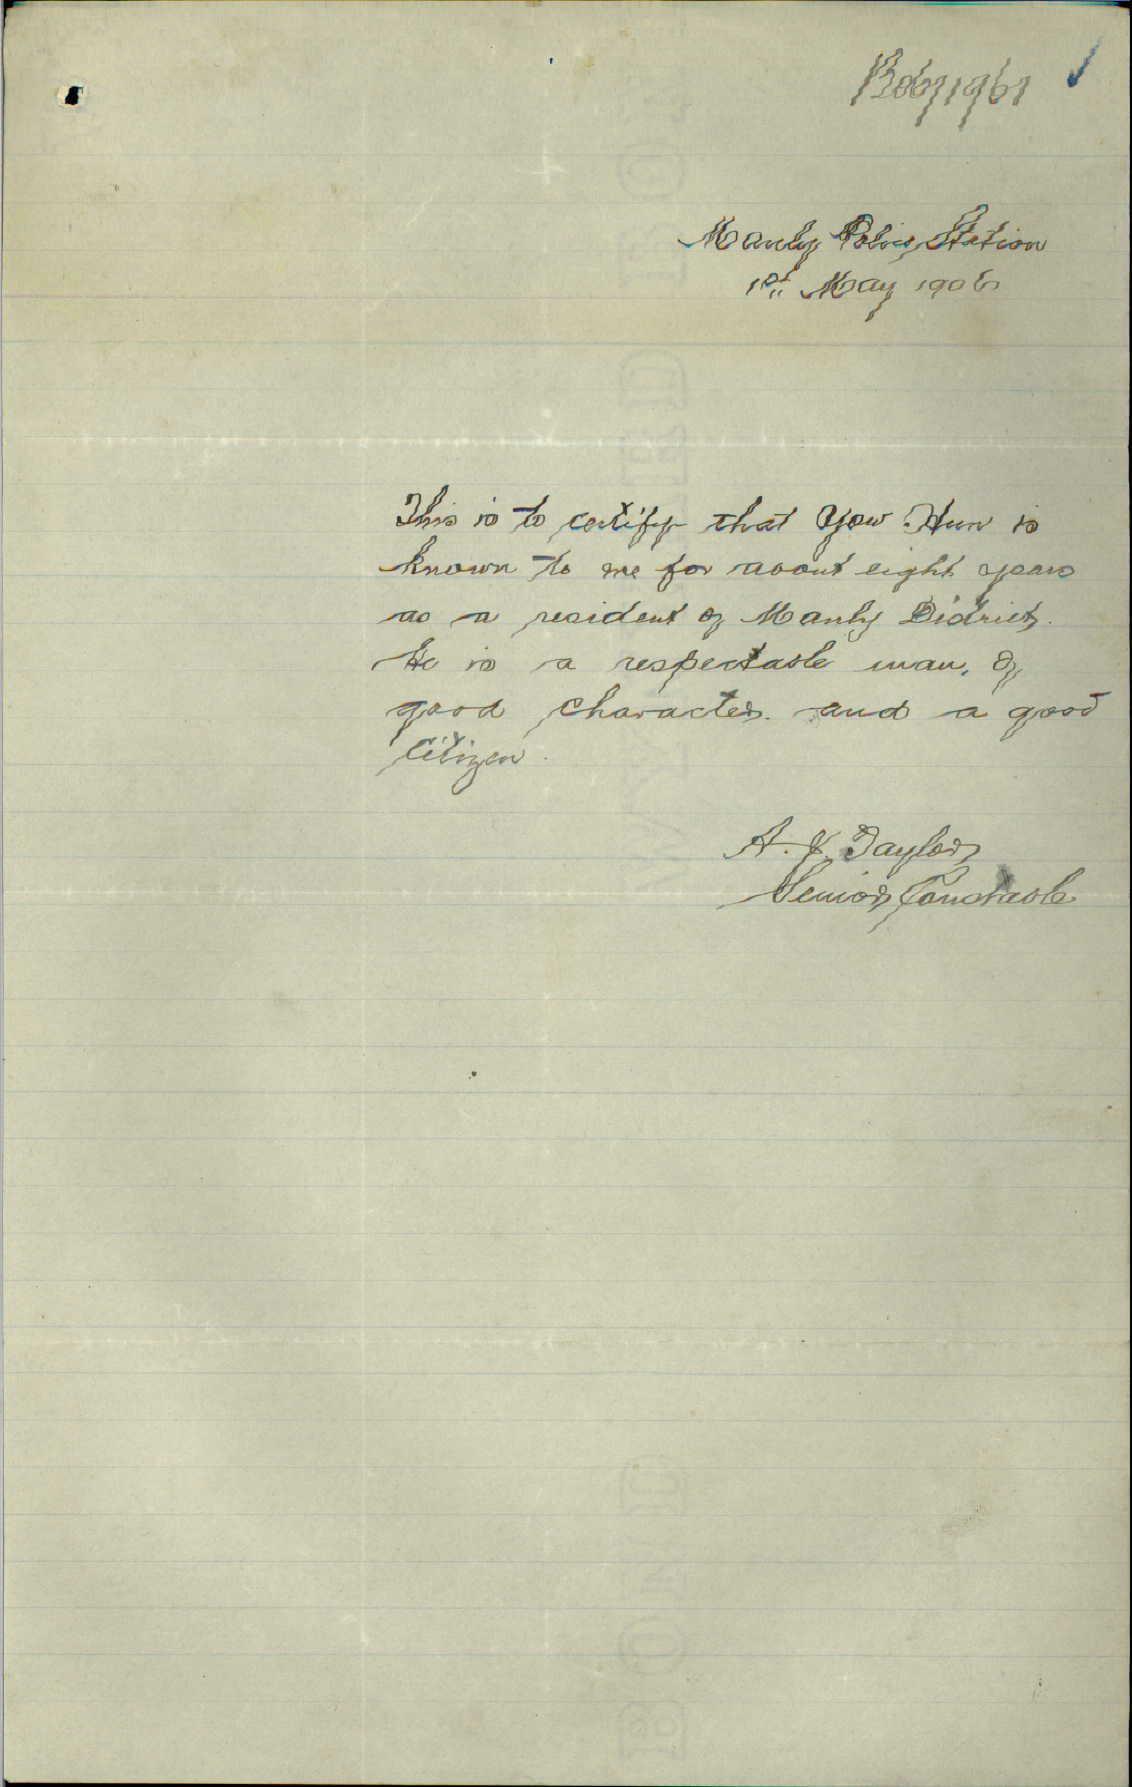 Manly Police Station
1st May 1906
This is to certify that Yow Hun is
known to me for about eight years
as a resident of Manly District.
He is a respectable man, of
good character. and a good
Citizen.
A. J. Taylor
Senior Constable